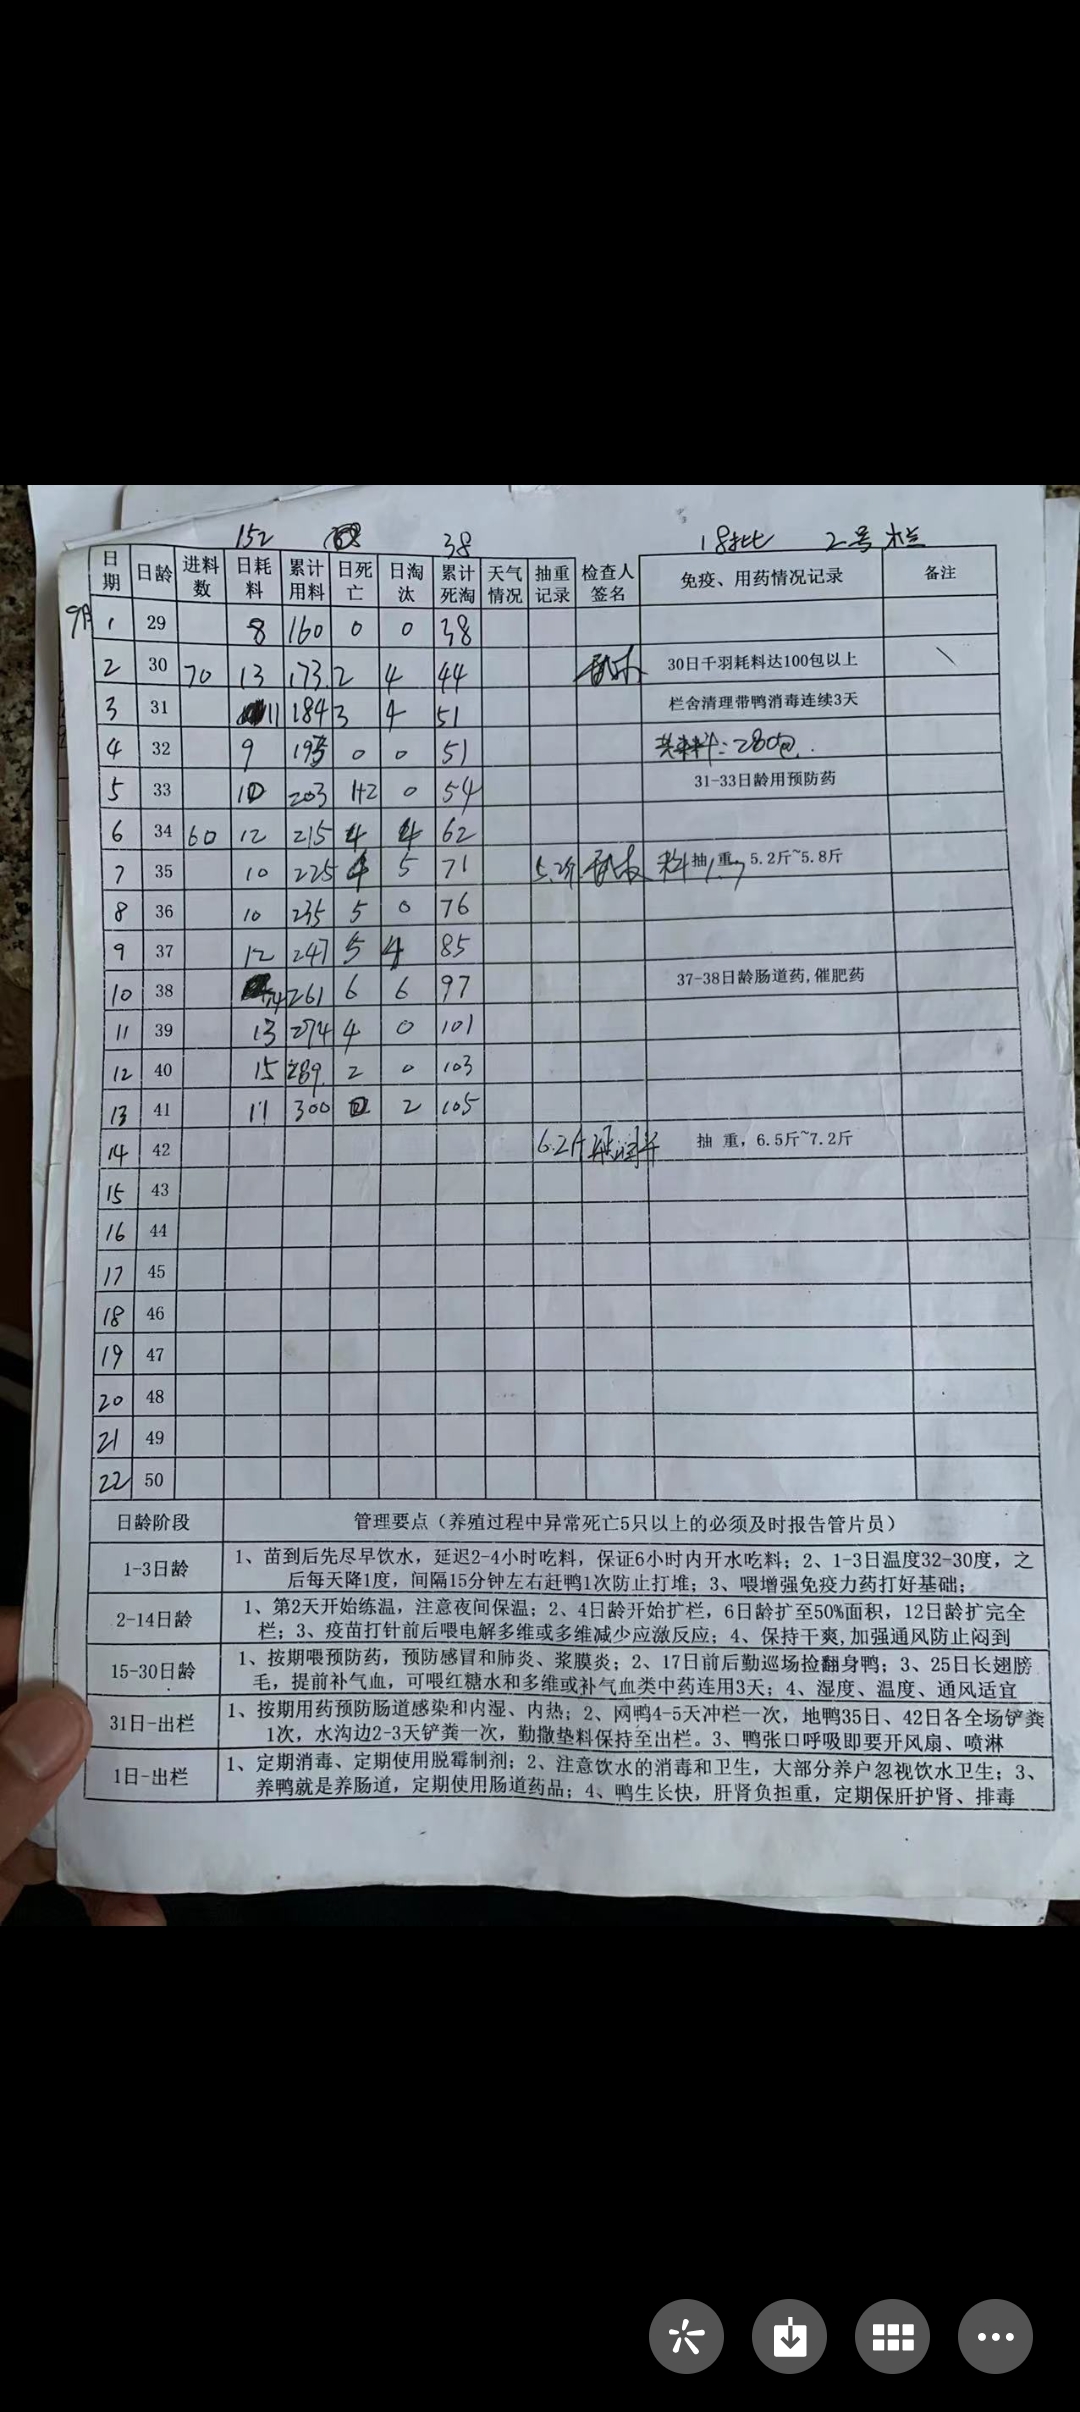 152 38 18批 2号栏
日期 日龄 进料数 日耗料 累计用料 日死亡 日淘汰 累计死淘 天气情况 抽重记录 检查人签名 免疫、用药情况记录 备注
9月 1 29 8 160 0 0 38
2 30 70 13 173 2 4 44 30日千羽耗料达100包以上
3 31 11 184 3 4 51 栏舍清理带鸭消毒连续3天
4 32 9 193 0 0 51 280包
5 33 10 203 1+2 0 54 31-33日龄用预防药
6 34 60 12 215 4 4 62
7 35 10 225 4 5 71 5.2斤 抽 重，5.2斤~5.8斤
8 36 10 235 5 0 76
9 37 12 247 5 4 85
10 38 14 261 6 6 97 37-38日龄肠道药,催肥药
11 39 13 274 4 0 101
12 40 15 289 2 0 103
13 41 11 300 2 105
14 42 6.2斤 抽 重，6.5斤~7.2斤
15 43
16 44
17 45
18 46
19 47
20 48
21 49
22 50
日龄阶段 管理要点（养殖过程中异常死亡5只以上的必须及时报告管片员）
1-3日龄 1、苗到后先尽早饮水，延迟2-4小时吃料，保证6小时内开水吃料；2、1-3日温度32-30度，之
后每天降1度，间隔15分钟左右赶鸭1次防止打堆；3、喂增强免疫力药打好基础；
2-14日龄 1、第2天开始练温，注意夜间保温；2、4日龄开始扩栏，6日龄扩至50%面积，12日龄扩完全
栏；3、疫苗打针前后喂电解多维或多维减少应激反应；4、保持干爽,加强通风防止闷到
15-30日龄 1、按期喂预防药，预防感冒和肺炎、浆膜炎；2、17日前后勤巡场捡翻身鸭；3、25日长翅膀
毛，提前补气血，可喂红糖水和多维或补气血类中药连用3天；4、湿度、温度、通风适宜
31日-出栏 1、按期用药预防肠道感染和内湿、内热；2、网鸭4-5天冲栏一次，地鸭35日、42日各全场铲粪
1次，水沟边2-3天铲粪一次，勤撒垫料保持至出栏。3、鸭张口呼吸即要开风扇、喷淋
1日-出栏 1、定期消毒、定期使用脱霉制剂；2、注意饮水的消毒和卫生，大部分养户忽视饮水卫生；3、
养鸭就是养肠道，定期使用肠道药品；4、鸭生长快，肝肾负担重，定期保肝护肾、排毒